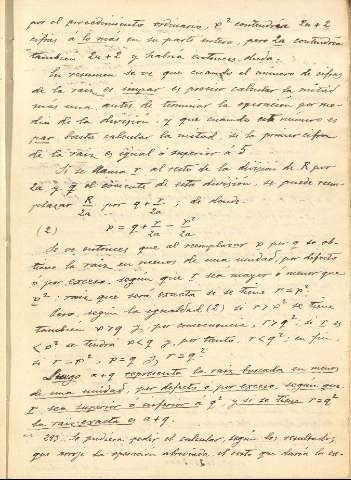 por el procedimiento ordinario, p² contendría 2n+2
cifras a lo más en su parte entera, pero 2a contendría
también 2n+2 y habría entonces duda.
En resumen se ve que cuando el número de cifras
de la raiz es impar es preciso calcular la mitad
más una antes de terminar la operación por me-
dio de la división, y que cuando este número es
par basta calcular la mitad, si la primera cifra
de la raiz es igual ó superior á 5.
Si se llama r al resto de la división de R por
2a y q el cociente de esta división, se puede reem-
plazar R/2a por q + r/2a, de donde
(2) p = q + r/2a - p²/2a
Se ve entonces que al reemplazar p por q se ob-
tiene la raiz en menos de una unidad, por defecto
ó por exceso, según que r sea mayor ó menor que
p²; raiz que será exacta si se tiene r = p².
Pero, según la igualdad (2) si r > p² se tiene
también p > q y, por consecuencia, r > q²; si r es
< p² se tendrá p < q y, por tanto, r < q²; en fin,
si r = p², p = q y r = q².
Luego a+q representa la raiz buscada en menos
de una unidad, por defecto ó por exceso, según que
r sea superior ó inferior á q², y si se tiene r = q²
la raiz exacta es a+q.
293. Se pudiera pedir el calcular, según los resultados
que arroje la operación abreviada, el resto que daría la ex-